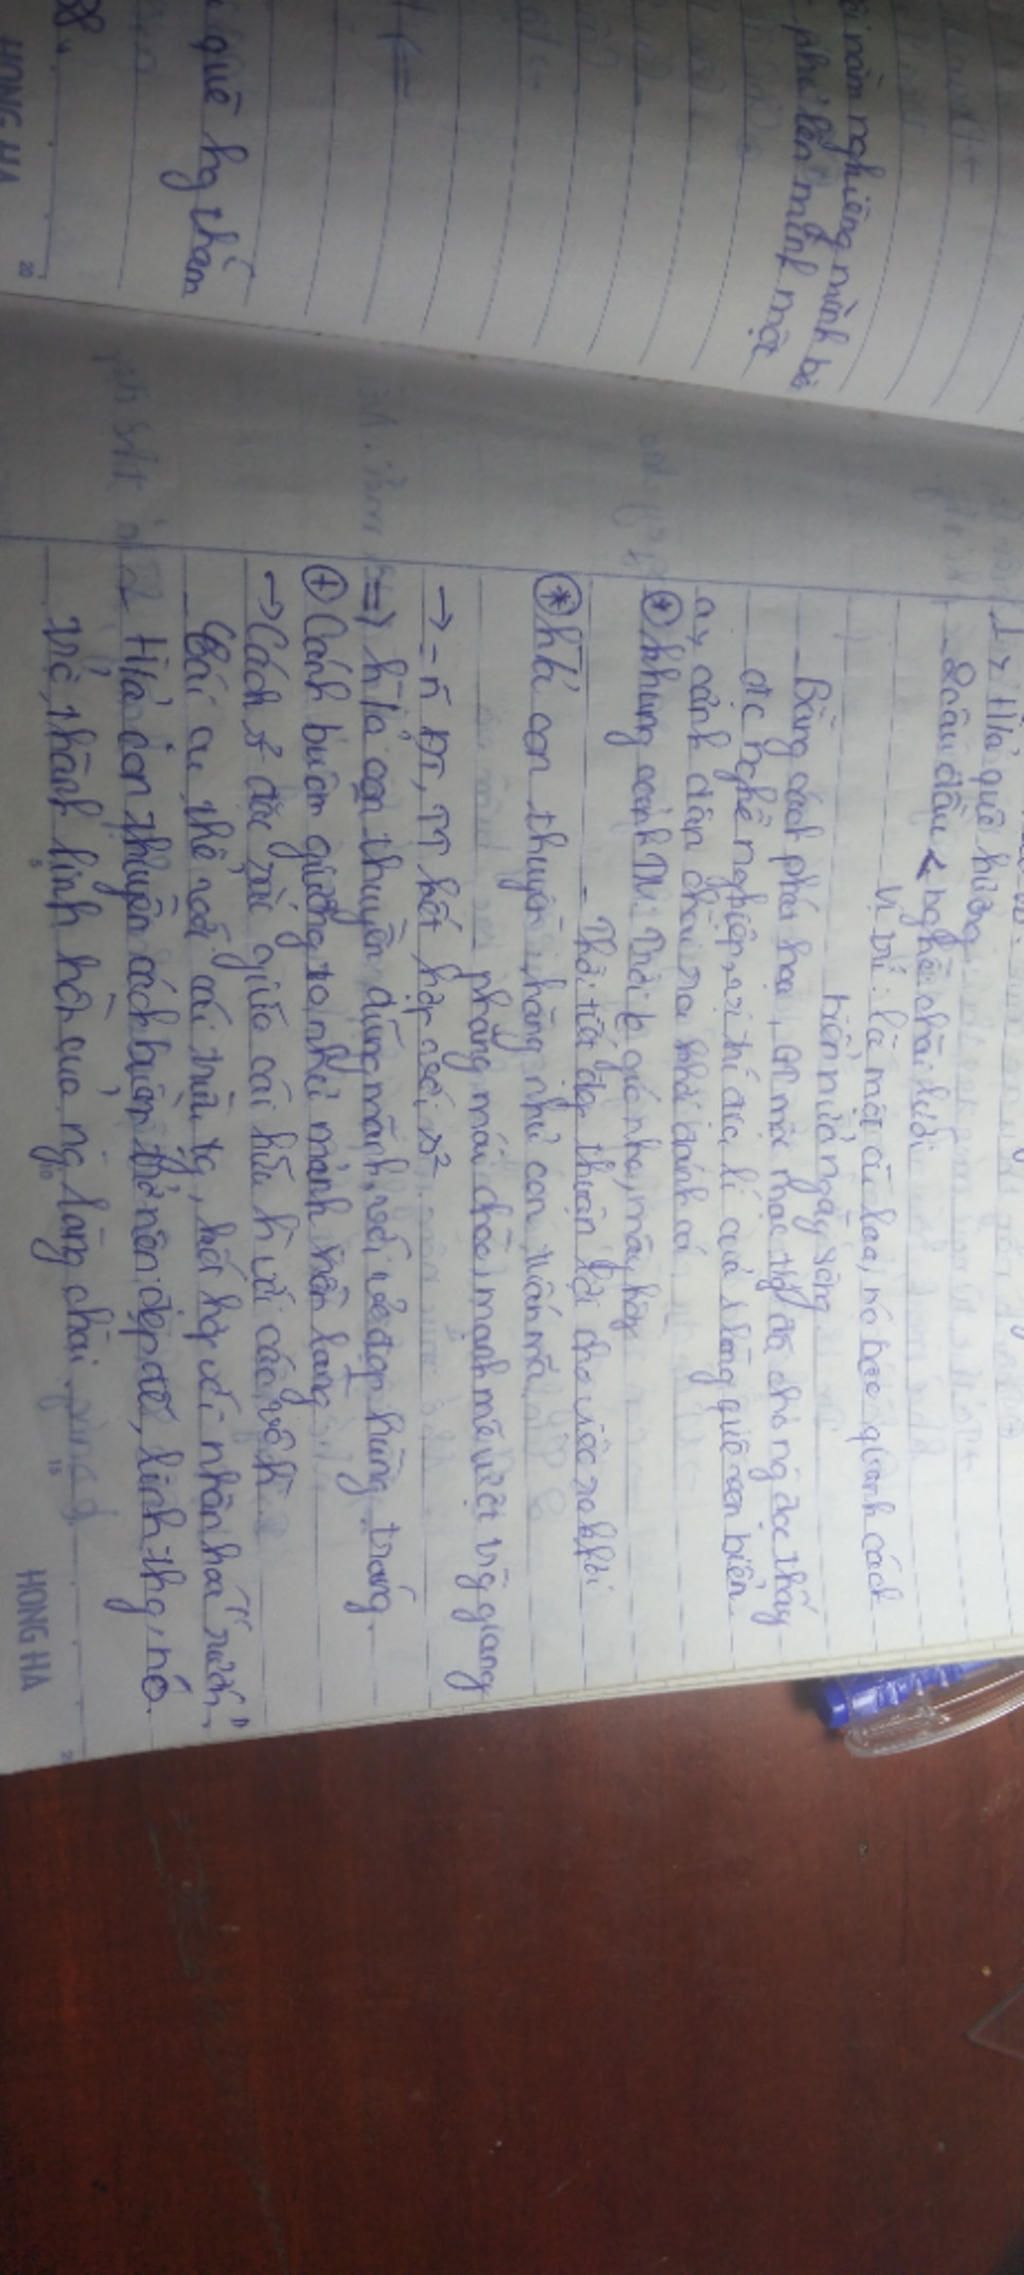 nằm nghiêng mình bê
phủ lên mình một
quê hg thắm
1, H/ả quê hương
2 câu đầu < nghề: chài lưới
Vị trí: là một cù lao, nó bao quanh cách
biển nửa ngày sông
Bằng cách phá hoại, GT mộc mạc tg đã cho ng đọc thấy
đc nghề nghiệp, vị trí địa lí của làng quê ven biển.
a, cảnh dân chài ra khơi đánh cá
* khung cảnh TN: Trời gió nhẹ, nắng hồng
- Thời tiết đẹp thuận lợi cho việc ra khơi
* h/ả con thuyền: hăng như con tuấn mã
phăng mái chèo, mạnh mẽ vượt trg giang
→ - ĐT, TT kết hợp với s²
=> h/ả con thuyền dũng mãnh, với vẻ đẹp hùng tráng.
+ Cánh buồm giương to như mảnh hồn làng
→ Cách s² độc đáo giữa cái hữu h với cái vô h
Cái cụ thể với cái trừu tg, kết hợp với nhân hoá "rướn"
H/ả con thuyền cánh buồm trở nên đẹp đẽ, linh thg, nó
Về, thành linh hồn của ng làng chài
HONG HA
HONG HA